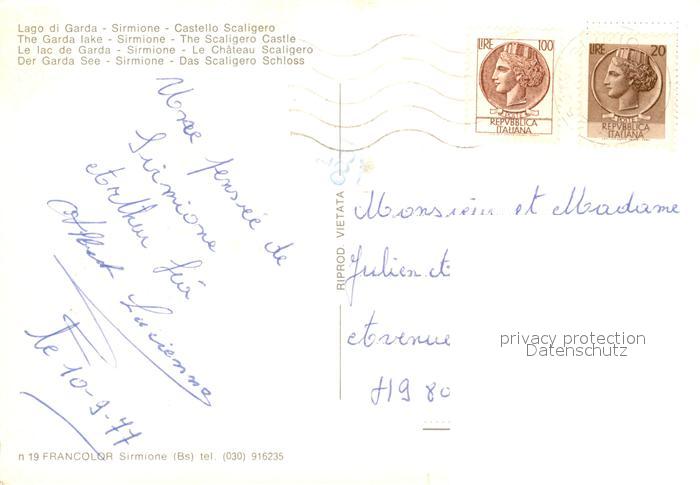 Lago di Garda - Sirmione - Castello Scaligero
The Garda lake - Sirmione - The Scaligero Castle
Le lac de Garda - Sirmione - Le Château Scaligero
Der Garda See - Sirmione - Das Scaligero Schloss
LIRE 100
POSTE
REPVBBLICA
ITALIANA
LIRE 20
POSTE
REPVBBLICA
ITALIANA
Une pensée de
Sirmione
Arthur
Albert Lucienne
le 10-9-77
RIPROD. VIETATA
Monsieur et Madame
Julien et
Avenue
4980
privacy protection
Datenschutz
n 19 FRANCOLOR Sirmione (Bs) tel. (030) 916235